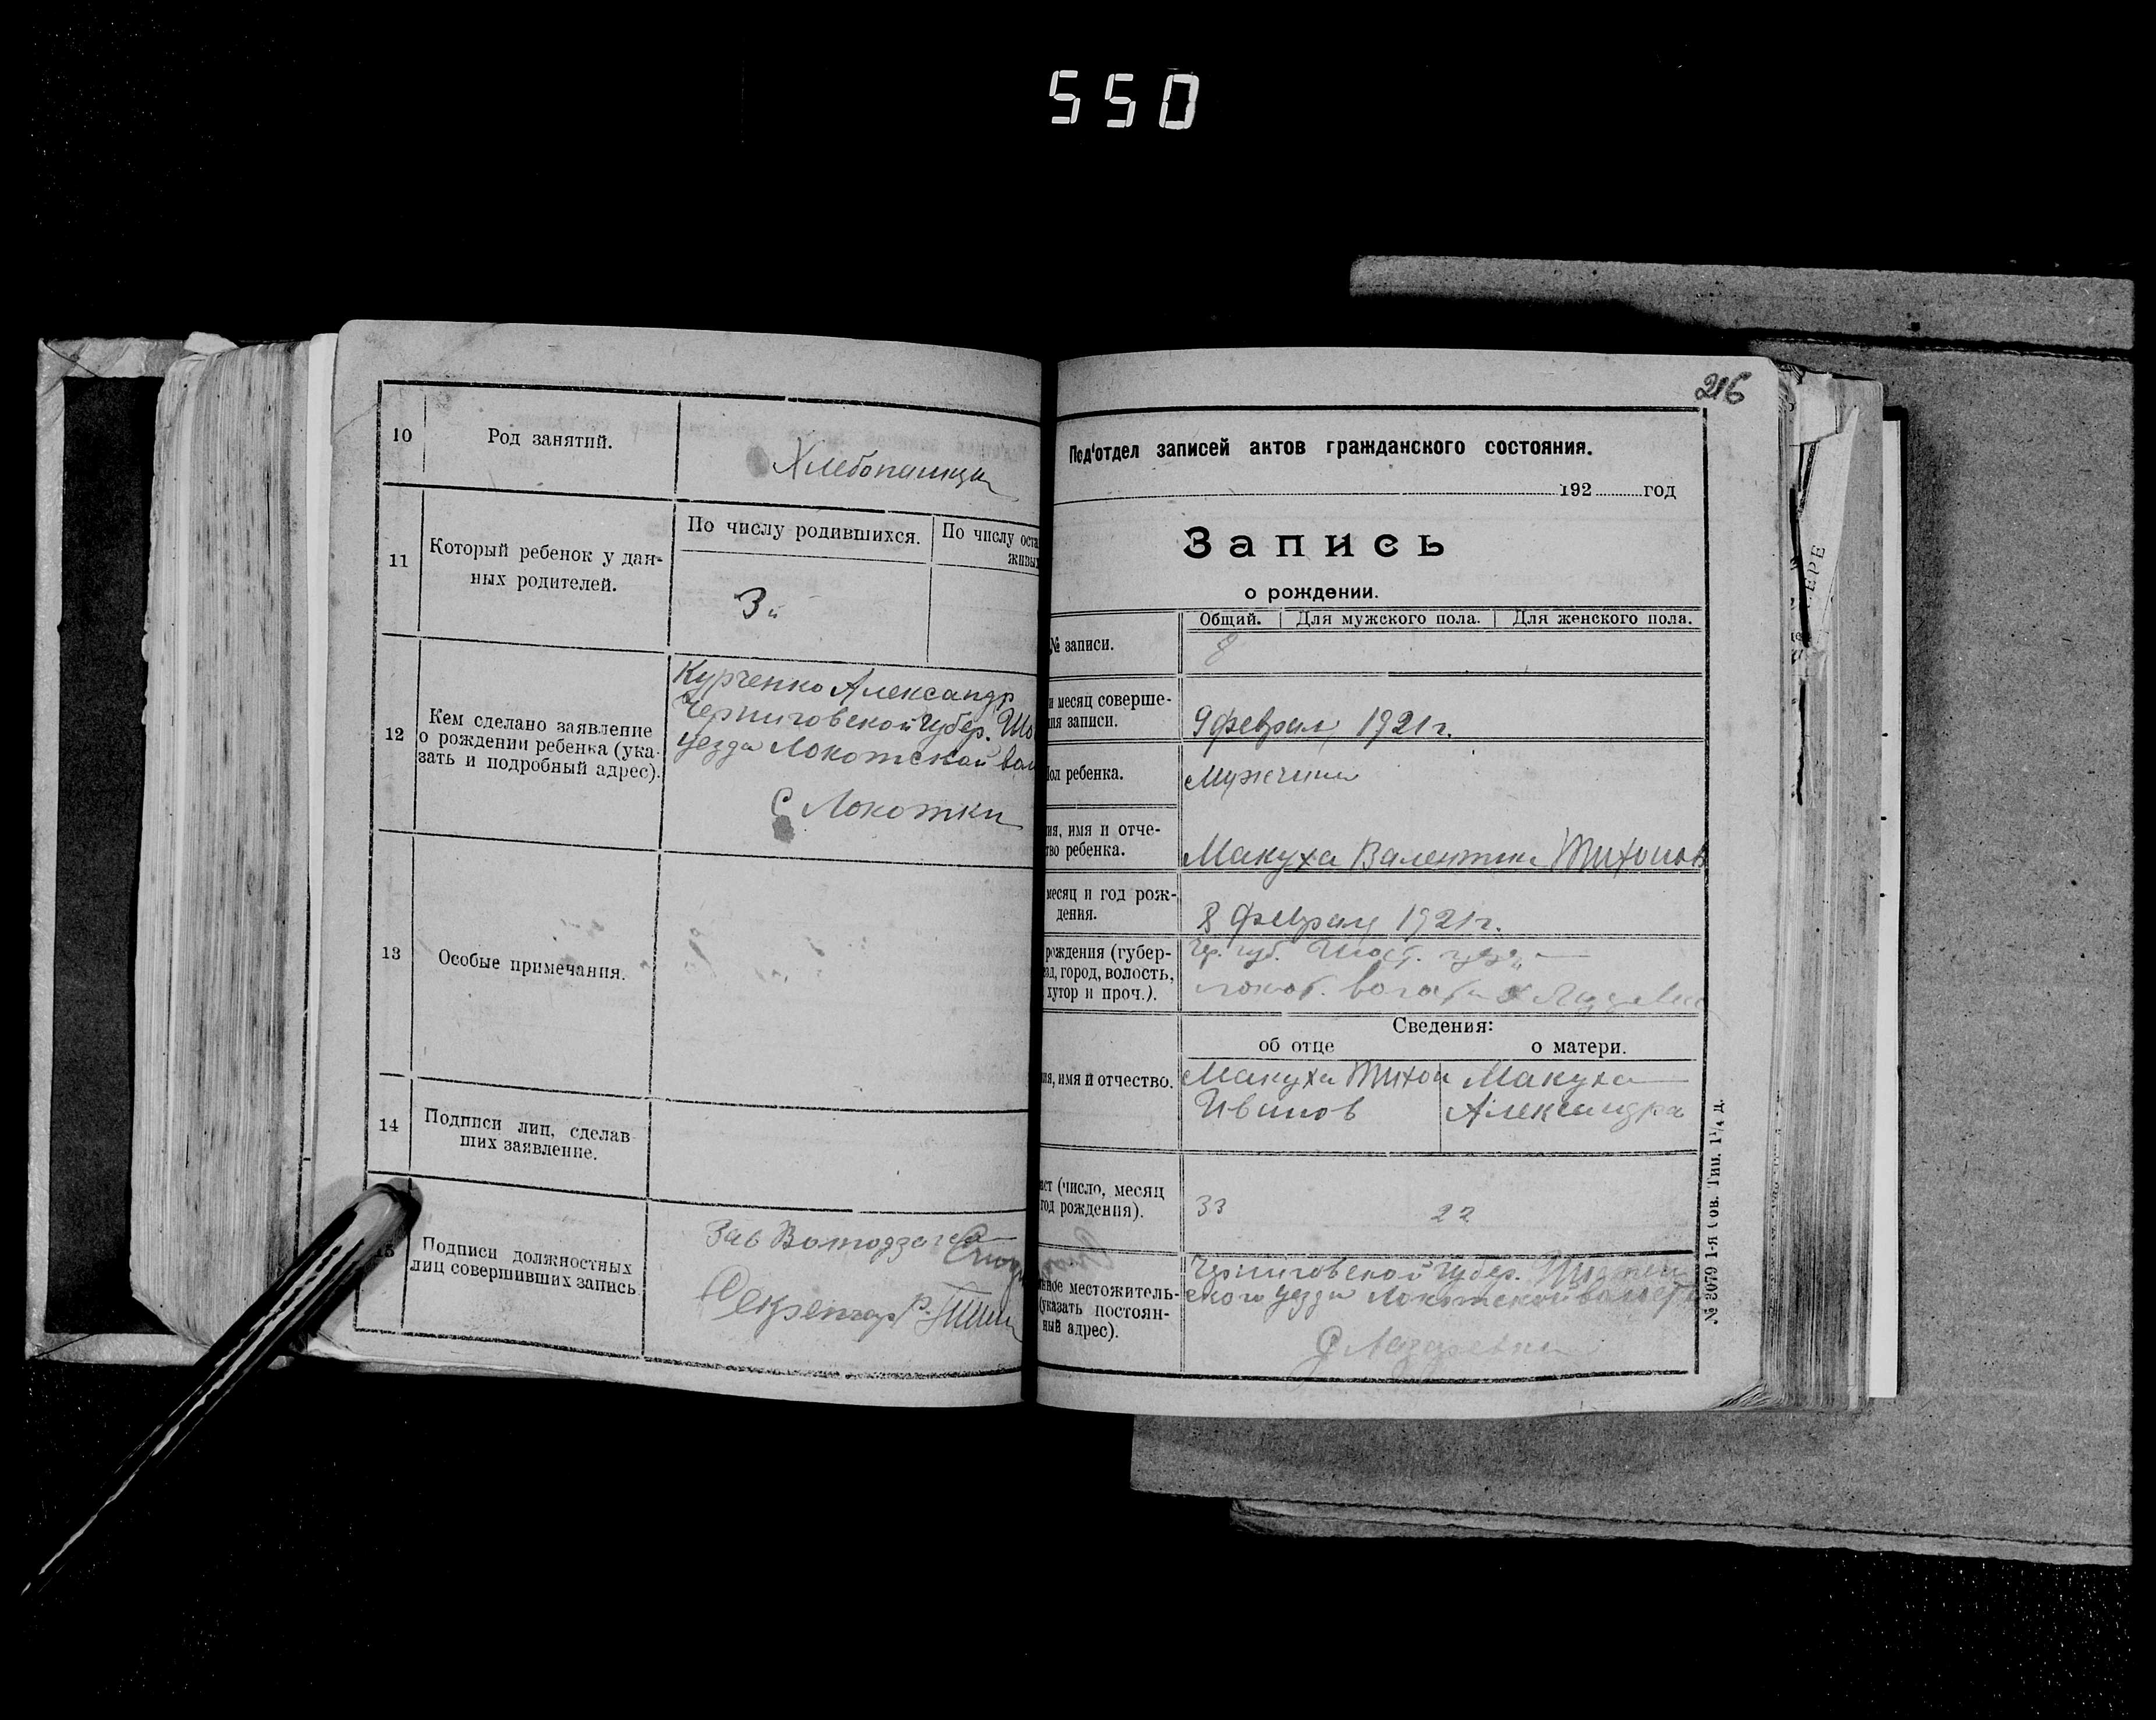 550
10
Род занятий.
Хлебопашцы
11
Который ребенок у дан-
ных родителей.
По числу родившихся.
По числу оста
живы
3й
12
Кем сделано заявление
о рождении ребенка (ука-
зать и подробный адрес).
Курченко Александр
Черниговской Губер. Шо
уезда Локотской вол
С Локотки
13
Особые примечания.
14
Подписи лиц, сделав
ших заявление.
15
Подписи должностных
лиц совершивших запись
Зав
Секретарь
216
Под'отдел записей актов гражданского состояния.
192 год
Запись
о рождении.
Общий. Для мужского пола. Для женского пола.
№ записи.
8
и месяц соверше-
ния записи.
9 феврал 1921г.
Пол ребенка.
Мужчина
ия, имя и отче-
тво ребенка.
Макуха Валентин Тихонов
месяц и год рож-
дения.
8 феврал 1921г.
рождения (губер-
зд, город, волость,
хутор и проч.).
Чр. губ. Шост.
Локот.
Сведения:
об отце
о матери.
ия, имя и отчество.
Макуха Тихон
Иванов
Макуха
Александра
аст (число, месяц
год рождения).
33
22
нное местожитель-
(указать постоян-
ный адрес).
Черниговской Губер.
ского уезда Локотской волост
С Лазаревки
№ 3079 1-я Сов. Тип. 1¹/₄ д.
ЕРЕ